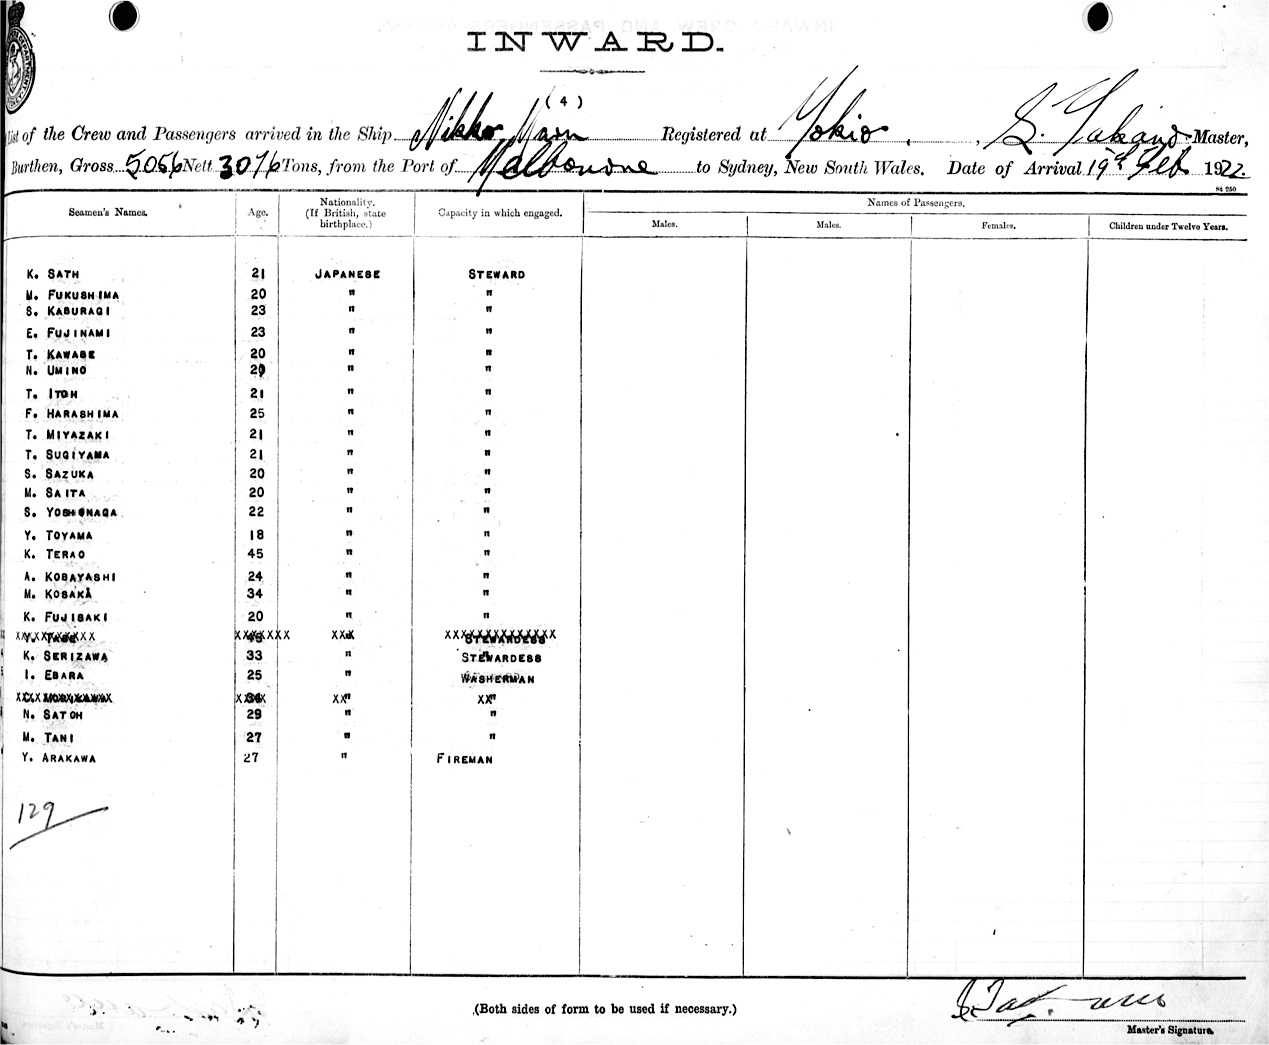 INWARD.
(4)
List of the Crew and Passengers arrived in the Ship Nikko Maru Registered at Tokio, S. Takano Master,
Burthen, Gross 5056 Nett 3076 Tons, from the Port of Melbourne to Sydney, New South Wales. Date of Arrival 19th Feb 1922.
St 250
Seamen's Names. Age. Nationality. (If British, state birthplace.) Capacity in which engaged. Names of Passengers.
Males. Males. Females. Children under Twelve Years.
K. SATH 21 JAPANESE STEWARD
M. FUKUSHIMA 20 " "
S. KABURAGI 23 " "
E. FUJINAMI 23 " "
T. KAWABE 20 " "
N. UMINO 20 " "
T. ITOH 21 " "
F. HARASHIMA 25 " "
T. MIYAZAKI 21 " "
T. SUGIYAMA 21 " "
S. SAZUKA 20 " "
M. SAITA 20 " "
S. YOSHINAGA 22 " "
Y. TOYAMA 18 " "
K. TERAO 45 " "
A. KOBAYASHI 24 " "
M. KOSAKA 34 " "
K. FUJISAKI 20 " "
STEWARDESS
K. SERIZAWA 33 " STEWARDESS
I. EBARA 25 " WASHERMAN
" "
N. SATOH 29 " "
M. TANI 27 " "
Y. ARAKAWA 27 " FIREMAN
129
(Both sides of form to be used if necessary.)
S. Takano
Master's Signature.